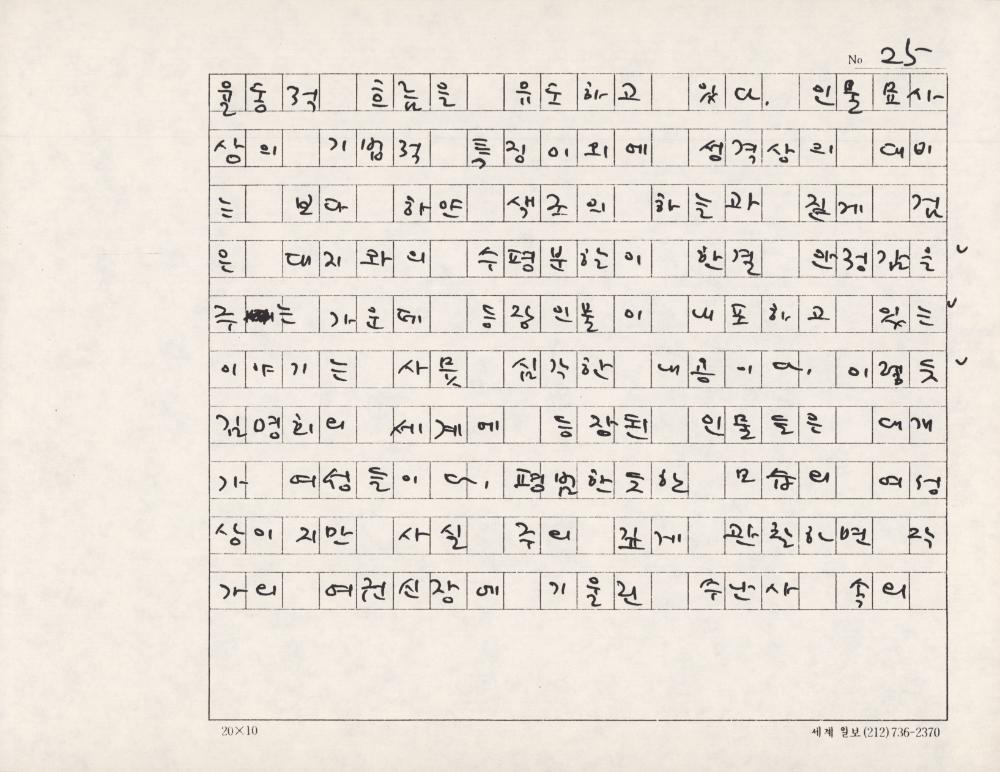 No 25
율동적 흐름을 유도하고 있다. 인물묘사
상의 기법적 특징이외에 성격상의 대비
는 보다 하얀 색조의 하늘과 짙게 검
은 대지와의 수평분할이 한결 안정감을
주는 가운데 등장인물이 내포하고 있는
이야기는 사뭇 심각한 내용이다. 이렇듯
김명희의 세계에 등장된 인물들은 대개
가 여성들이다. 평범한듯한 모습의 여성
상이지만 사실 주의 깊게 관찰하면 작
가의 여권신장에 기울린 수난사 속의
20×10
세계 월보 (212) 736-2370